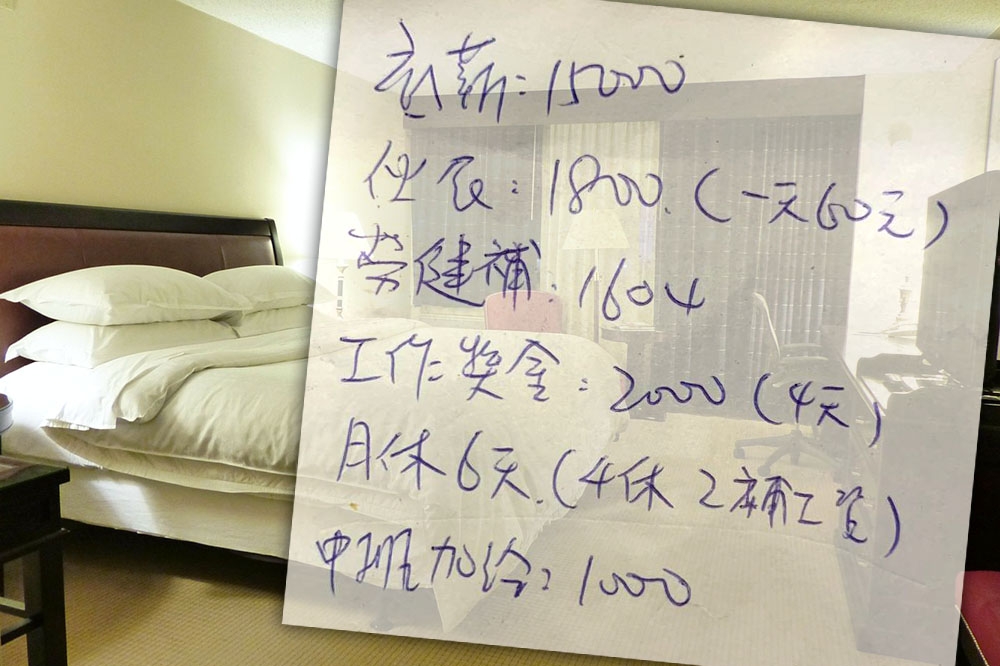 底薪:15000
伙食:1800.(一天60元)
劳健補:1604
工作獎金:2000(4天)
月休6天.(4休2補工資)
中班加給:1000